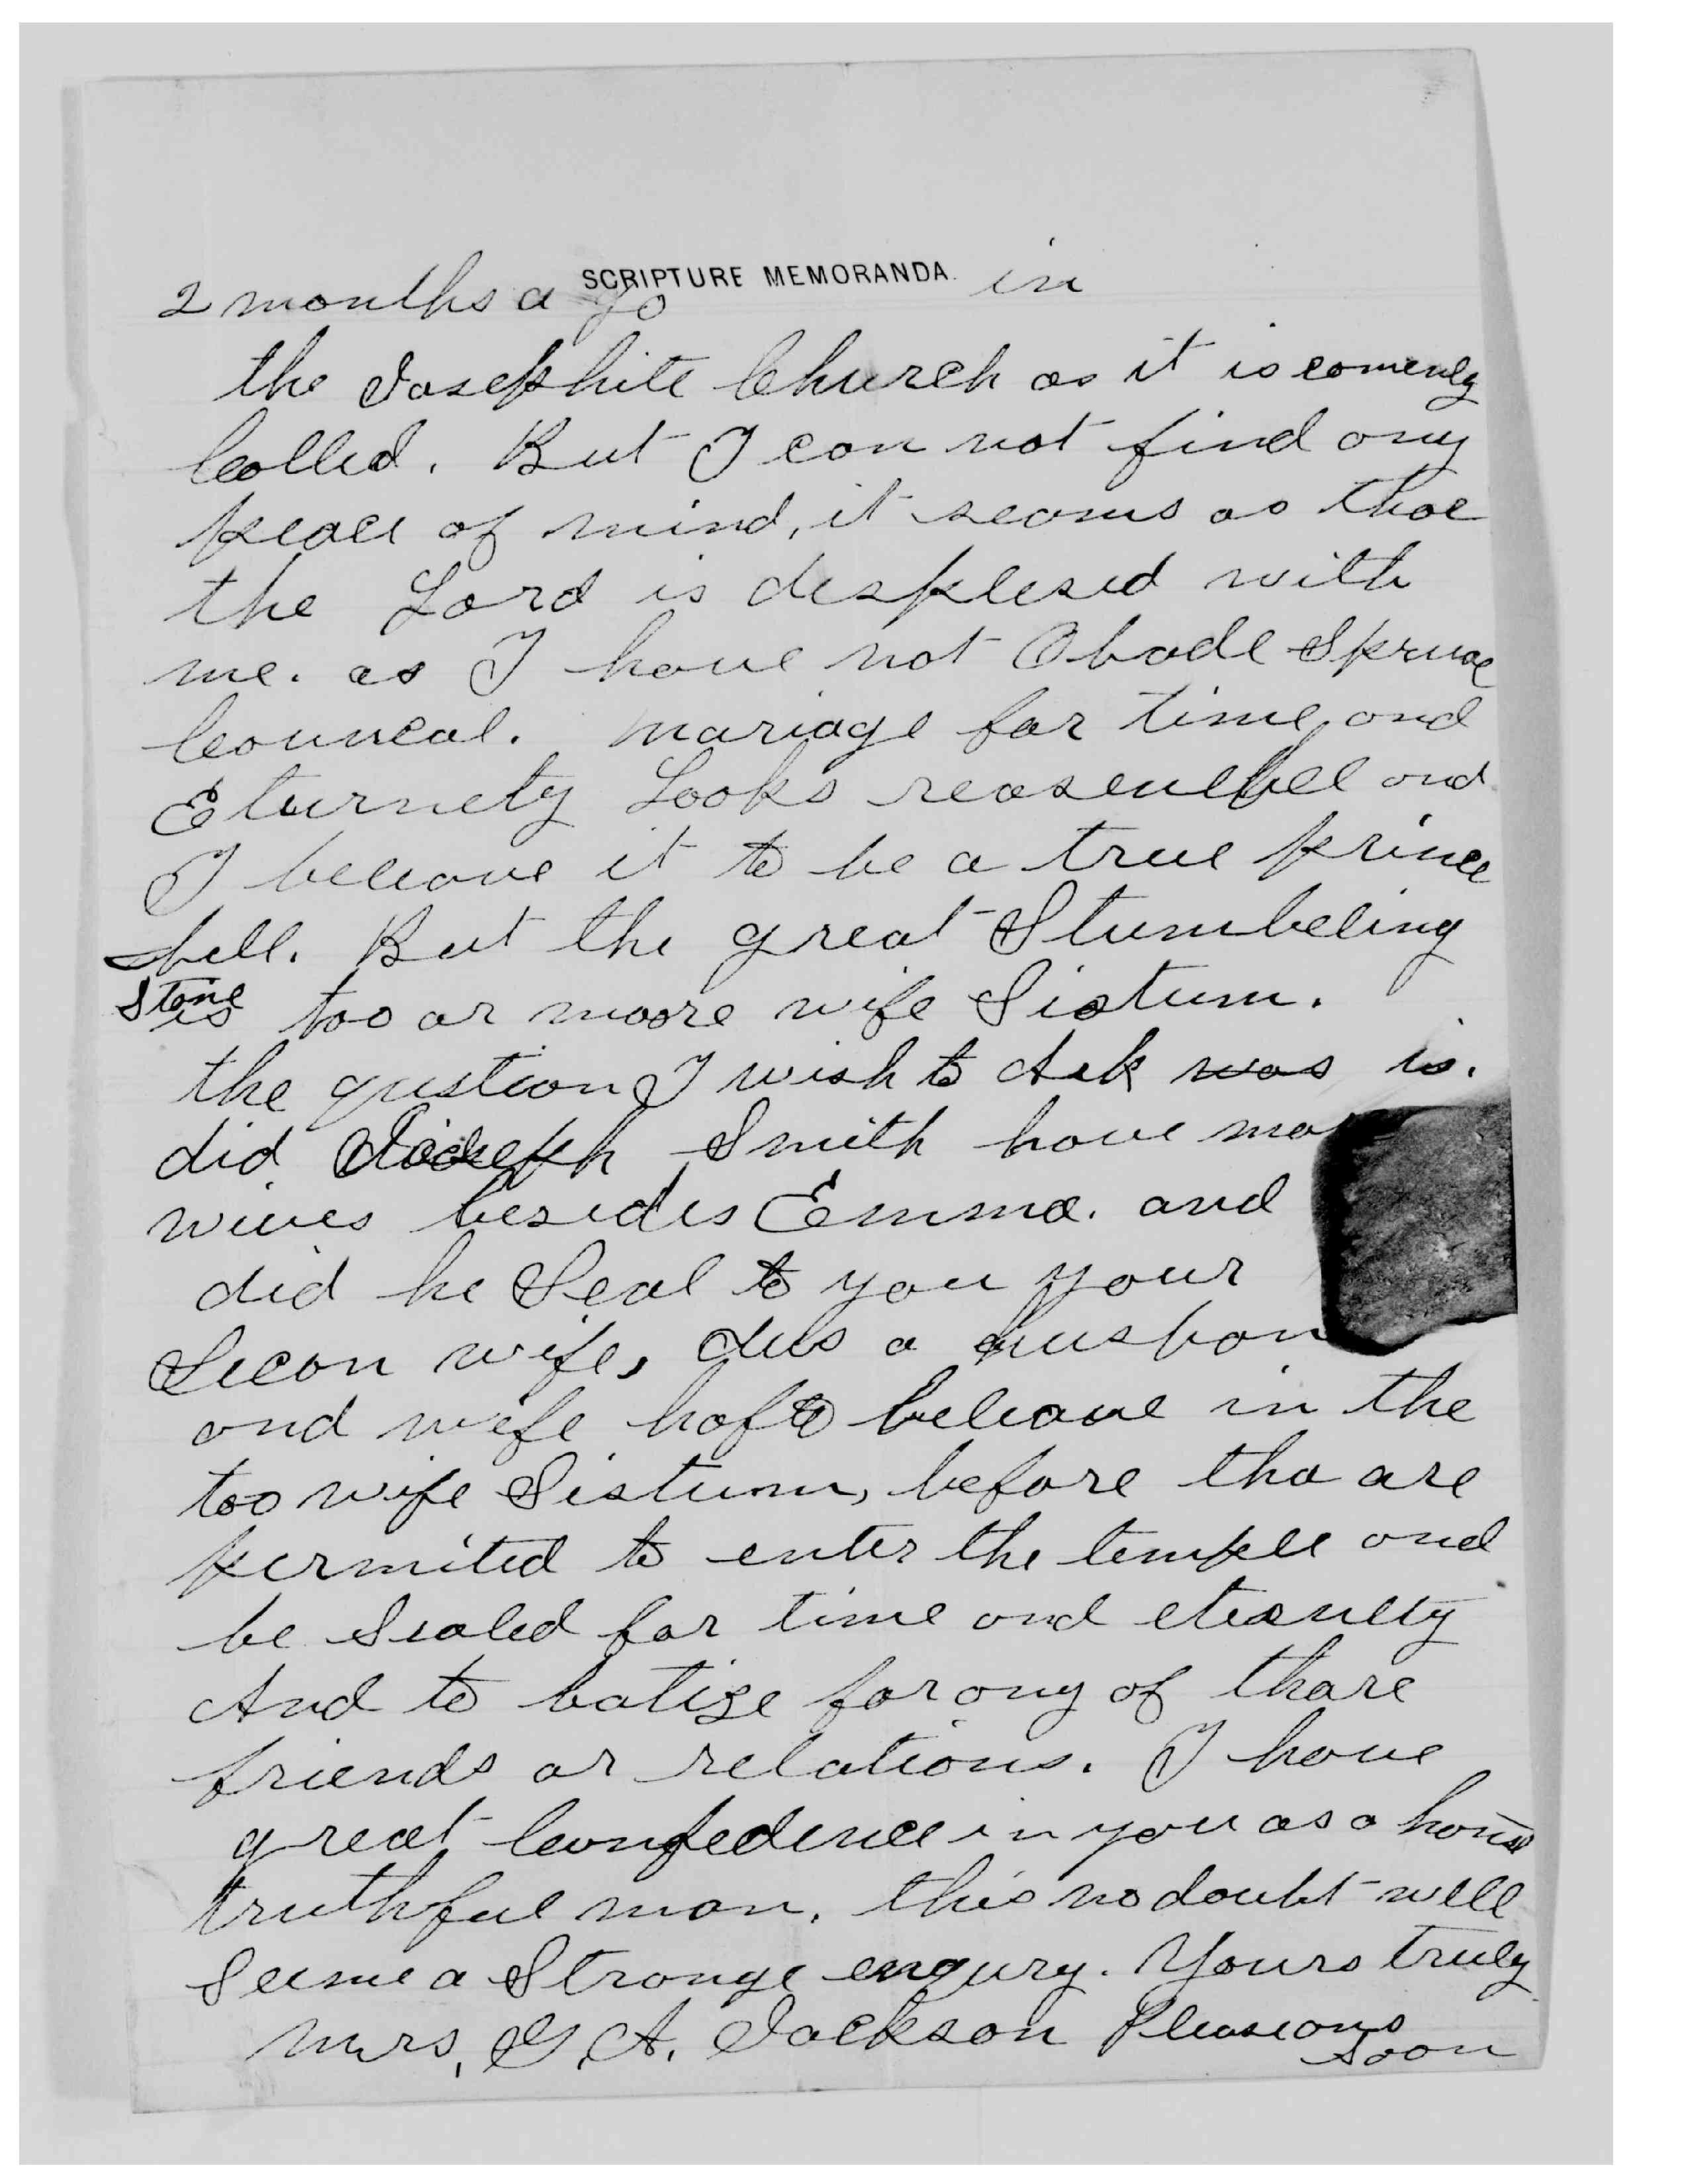 SCRIPTURE MEMORANDA.
2 months a go in
the Josephite Church as it is comenly
Colled. But I can not find any
peace of mind, it seams as thoe
the Lord is desplesed with
me. as I have not Obade
Councal. mariage for time, and
Eturnety Looks and
I beleave it to be a true prince
bell. But the great Stumbeling
Stone is too or moore wife Sistum.
the qustion I wish to Ask was is.
did Joseph Smith have
wives besides Emma. and
did he Seal to you your
Secon wife, dus a husban
and wife haf to beleave in the
too wife Sistum, before tha are
permited to enter the tempel and
be Sealed for time and
And to batize for any of thare
friends or relations. I have
great Confedence in you as a
truthful man. this no doubt will
Seime a Strange enqury. Yours truly
Mrs. G. A. Jackson Please ans
Soon